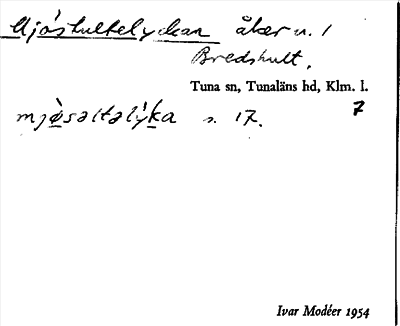 Mjóshultelyckan åker n. 1
Bredshult.
Tuna sn, Tunaläns hd, Klm. l.
mjø̀səltəlýka s. 17. 7
Ivar Modéer 1954